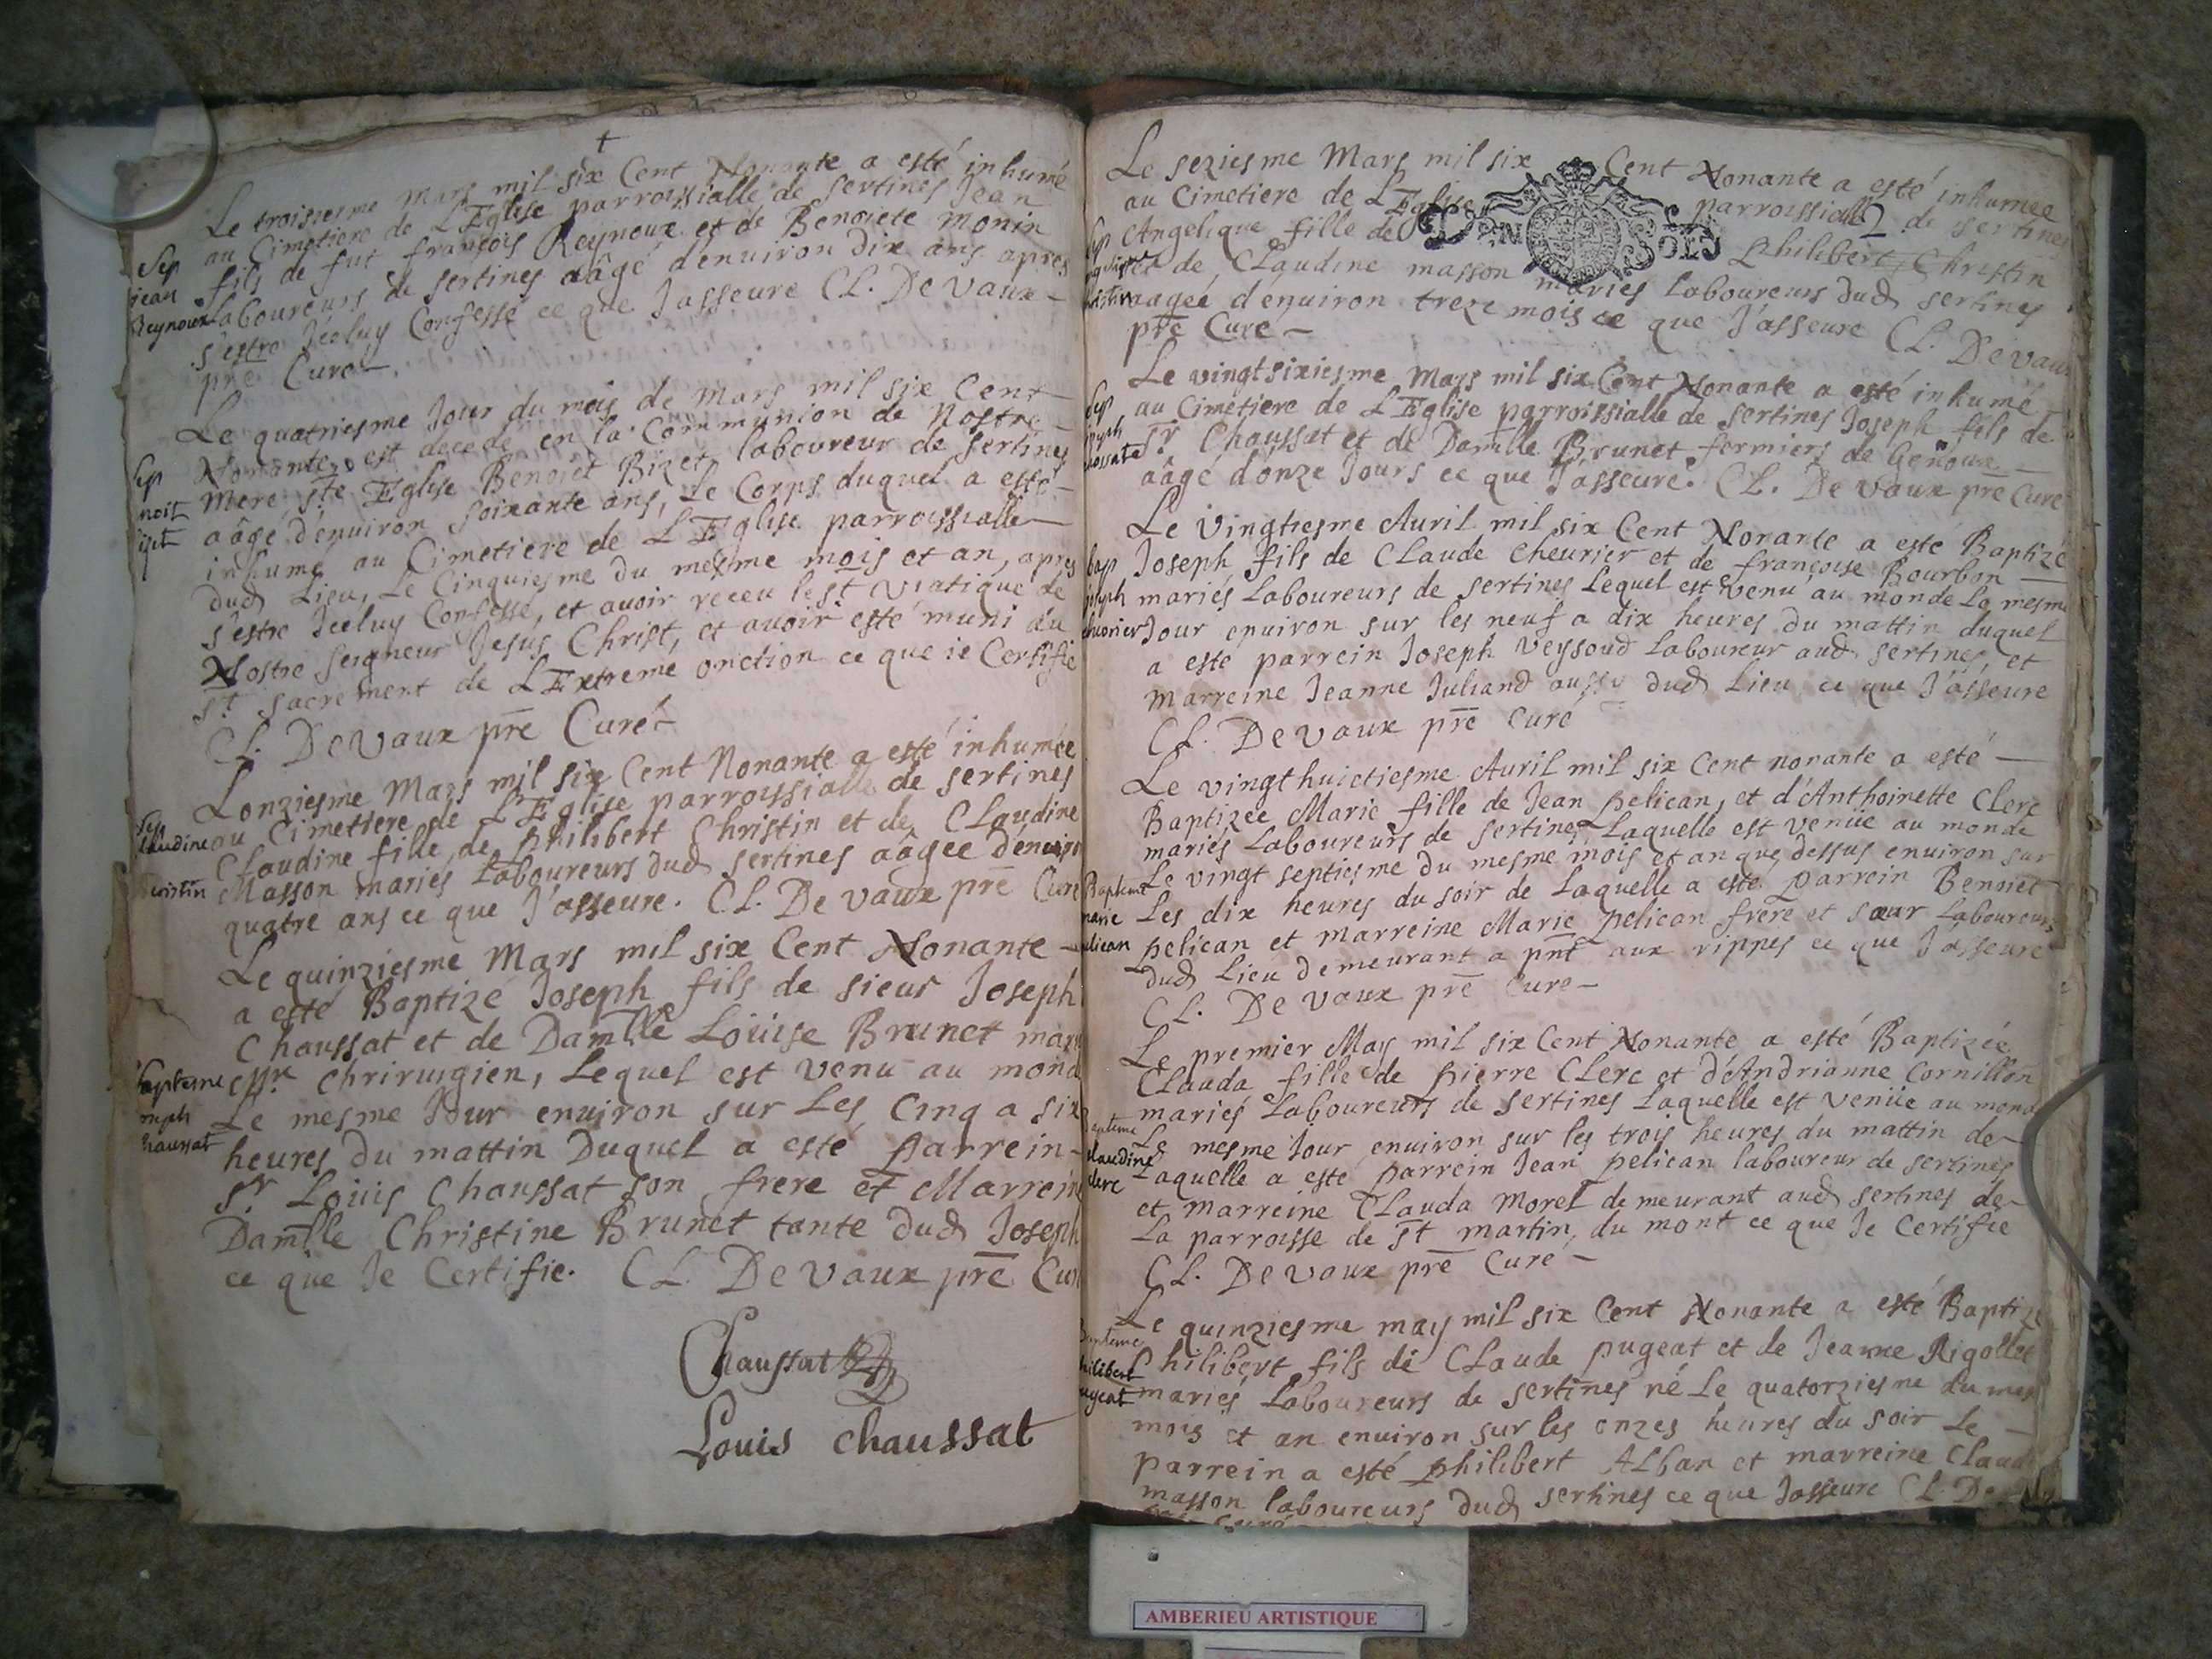 Le troisiesme Mars mil six Cent Nonante a esté inhumé
au Cimetiere de L'Eglise parroissialle de sertines Jean
fils de fut françois Reynoux et de Benoiete Monin
Laboureurs de sertines aâgé d'enuiron dix ans apres
s'estre Jceluy Confessé ce que J'asseure CL. De Vaux
pre Curé
Sep
jean
Reynoux
Le quatriesme Jour du mois de Mars mil six Cent
Nonante est decedé en la Communion de Nostre
Mere ste Eglise Benoiet Bizet laboureur de sertines
aâgé d'enuiron soixante ans, Le Corps duquel a esté
inhumé au Cimetiere de L'Eglise parroissialle
dud Lieu, Le Cinquiesme du mesme mois et an, apres
s'estre Jceluy Confessé, et auoir receu le st Viatique de
Nostre seigneur Jesus Christ, et auoir esté muni du
st sacrement de L'Extreme onction ce que ie Certifie
CL. De Vaux pre Curé
Sep
noit
izet
L'onziesme Mars mil six Cent Nonante a esté inhumée
au Cimetiere de L'Eglise parroissialle de sertines
CLaudine fille de philibert Christin et de CLaudine
Masson mariés Laboureurs dud sertines aâgée d'enuiron
quatre ans ce que J'asseure. CL. De Vaux pre Curé
Sep
Claudine
hristin
Le quinziesme Mars mil six Cent Nonante
a esté Baptizé Joseph fils de sieur Joseph
Chaussat et de Damlle Loüise Brunet mar
chrirurgien, Lequel est venu au mond
Le mesme Jour enuiron sur Les Cinq a six
heures du mattin Duquel a esté parrein
sr Loüis Chaussat son frere et Marreine
Damlle Christine Brunet tante dud Joseph
ce que Je Certifie. CL. De Vaux pre Cur
Bapteme
oseph
haussat
Chaussat
Louis chaussat
Le seziesme Mars mil six Cent Nonante a esté inhumée
au Cimetiere de L'Eglise parroissialle de sertines
Angelique fille de Philibert Christin
et de CLaudine masson mariés Laboureurs dud sertines
aagée d'enuiron treze mois ce que J'asseure CL. De Vaux
pre Curé
DEN SOLS
Sep
Le vingtsixiesme Mars mil six Cent Nonante a esté inhumé
au Cimetiere de L'Eglise parroissialle de sertines Joseph fils de
sr. Chaussat et de Damlle Brunet fermiers de Genoux
aâgé d'onze Jours ce que J'asseure. CL. De Vaux pre Curé
Sep
joseph
Le Vingtiesme Auril mil six Cent Nonante a esté Baptizé
Joseph fils de CLaude cheurier et de françoise Bourbon
mariés Laboureurs de sertines Lequel est venu au monde Le mesme
Jour enuiron sur les neuf a dix heures du mattin duquel
a esté parrein Joseph Veysoud Laboureur aud sertines, et
marreine Jeanne Juliand aussy dud Lieu ce que J'asseure
CL. De Vaux pre Curé
bap
joseph
cheuvrier
Le vingthuictiesme Auril mil six Cent nonante a esté
Baptizée Marie fille de Jean pelican, et d'Anthoinette Clerc
mariés Laboureurs de sertines Laquelle est venüe au monde
Le vingt septiesme du mesme mois et an que dessus enuiron sur
Les dix heures du soir de Laquelle a esté parrein Benoiet
pelican et marreine Marie pelican frere et sœur Laboureurs
dud Lieu demeurant a pnt aux rippes ce que J'asseure
CL. De Vaux pre Curé
Bapteme
marie
elican
Le premier May mil six Cent Nonante a esté Baptizée
CLauda fille de pierre CLerc et d'Andrianne Cornillon
mariés Laboureurs de sertines Laquelle est venüe au mond
Le mesme Jour enuiron sur les trois heures du mattin de
Laquelle a esté parrein Jean pelican laboureur de sertines
et marreine CLauda Morel demeurant aud sertines de
La parroisse de st martin du mont ce que Je Certifie
CL. De Vaux pre Curé
Bapteme
claudine
clerc
Le quinziesme may mil six Cent Nonante a esté Baptizé
Philibert fils de CLaude pugeat et de Jeanne Rigollet
mariés Laboureurs de sertines né Le quatorziesme du mes
mois et an enuiron sur les onzes heures du soir Le
parrein a esté philibert ALban et marreine Claud
masson laboureurs dud sertines ce que J'asseure CL. De
Bapteme
hilibert
ugeat
AMBERIEU ARTISTIQUE